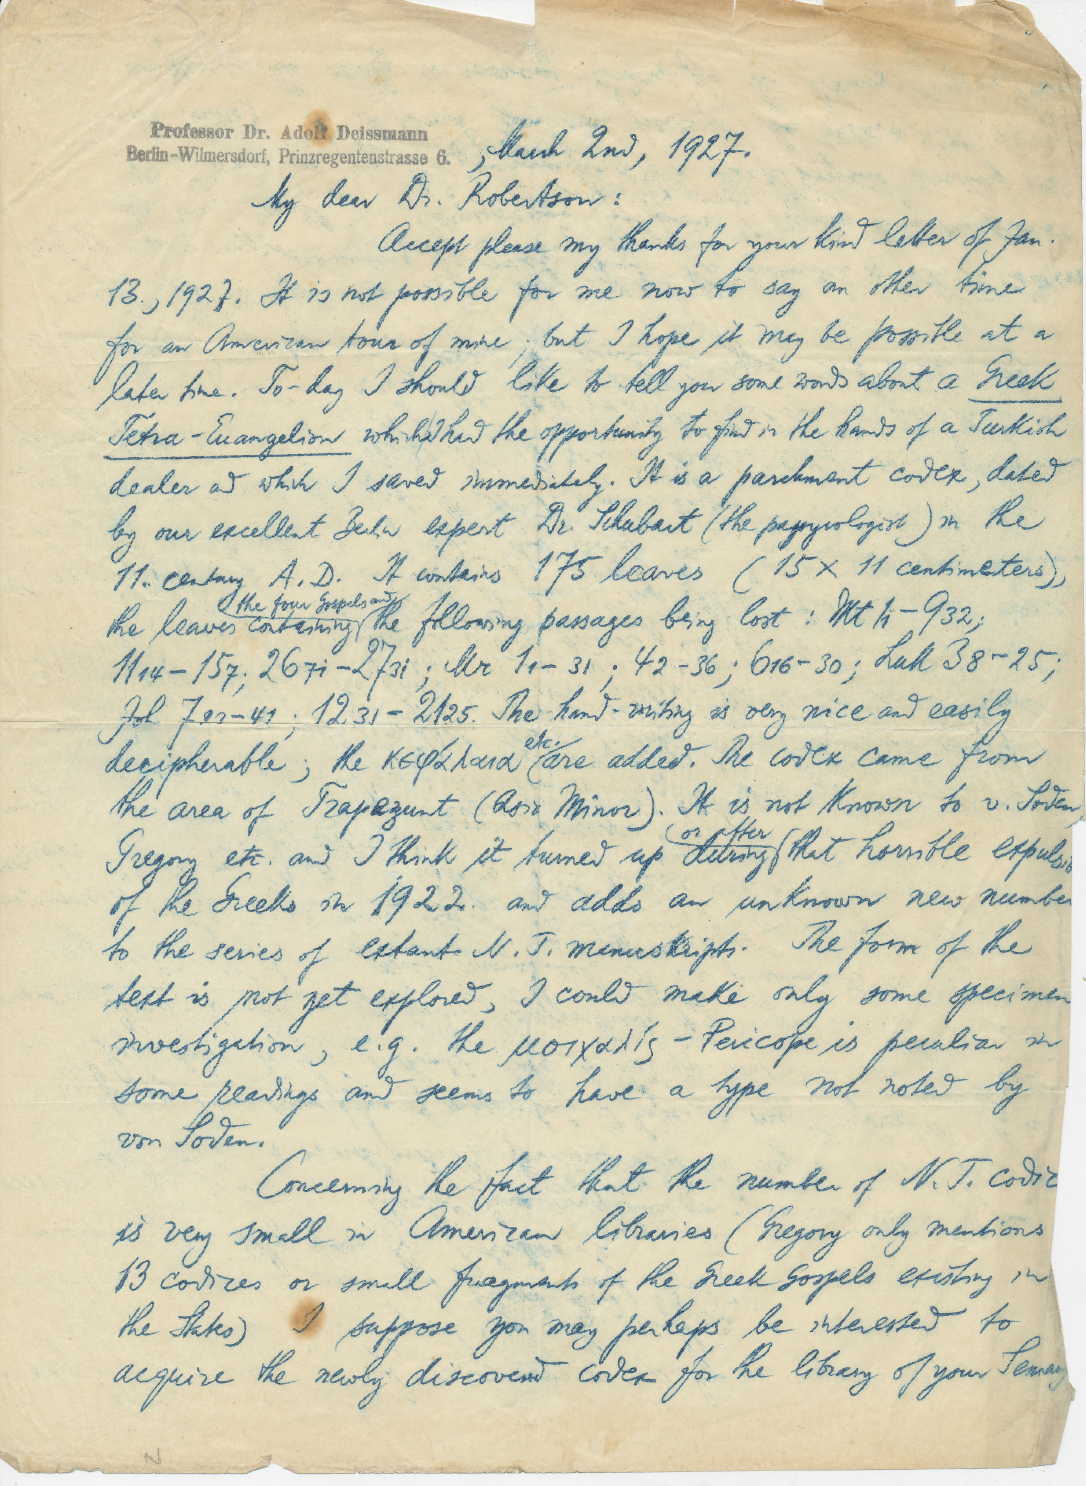 Professor Dr. Adolf Deissmann
Berlin-Wilmersdorf, Prinzregentenstrasse 6.
, March 2nd, 1927.
My dear Dr. Robertson:
Accept please my thanks for your kind letter of Jan.
13., 1927. It is not possible for me now to say an other time
for an American tour of mine, but I hope it may be possible at a
later time. To-day I should like to tell you some words about a Greek
Tetra-Euangelion which I had the opportunity to find in the hands of a Turkish
dealer ad which I saved immediately. It is a parchment codex, dated
by our excellent Berlin expert Dr. Schubart (the papyrologist) in the
11. century A.D. It contains 175 leaves (15 x 11 centimeters),
the four Gospels and
the leaves containing the following passages being lost: Mt 1 1-9 32;
11 14-15 7; 26 71-27 31; Mr 1 1-31; 4 2-36; 6 16-30; Luk 3 8-25;
Joh 7 -41; 12 31-21 25. The hand-writing is very nice and easily
etc.
decipherable; the κεφάλαια are added. The codex came from
the area of Trapezunt (Asia Minor). It is not known to v. Soden
or after
Gregory etc. and I think it turned up during that horrible expulsio
of the Greeks in 1922. and adds an unknown new number
to the series of extant N.T. manuskripts. The form of the
text is not yet explored, I could make only some specimen
investigation, e.g. the μοιχαλίς-Pericope is peculiar in
some readings and seems to have a type not noted by
von Soden.
Concerning the fact that the number of N.T. codic
is very small in American libraries (Gregory only mentions
13 codices or small fragments of the Greek Gospels existing in
the States) I suppose you may perhaps be interested to
acquire the newly discovered codex for the library of your